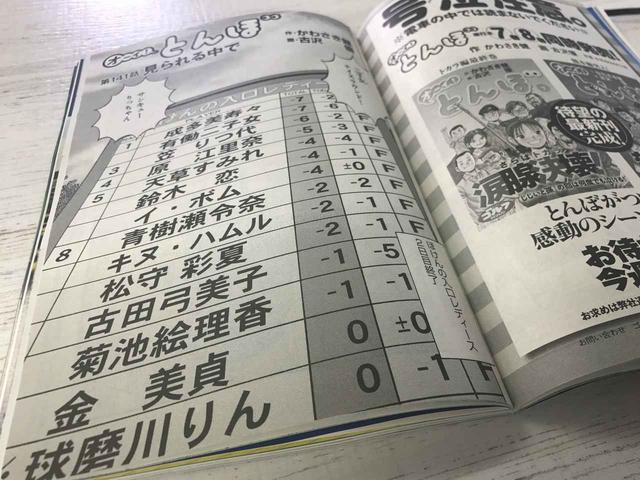 オーイ!とんぼ
第141話 見られる中で
作 かわさき健
画 古沢
サンキュー
りっちゃん
けんの入口レディ
1 成多美寿々 -7 -2 F
有働二千女 -7 -6 F
3 笠 りつ代 -6 -3 F
4 原 江里奈 -5 F
5 天草すみれ -4 -1 F
鈴木 恋 -4 ±0 F
イ・ボム -4 -2 F
8 青樹瀬令奈 -2 -2 F
キヌ・ハムル -2 -2 F
松守 彩夏 -2 -1 F
古田弓美子 -1 -5
菊池絵理香 -1 -1
金 美貞 0 ±0
球磨川りん 0 -1 F
ほけんの入口レディース
2日目終了
号泣注意。
※電車の中では読まないでください!!
オーイ!とんぼ
7巻 8巻
トカラ編最終巻
作 かわさき健
オーイ!とんぼ
待望の
最新刊
完成
涙腺
とんぼがつ
感動のシーン
お待
今週
お求めは弊社
お問い合わせ